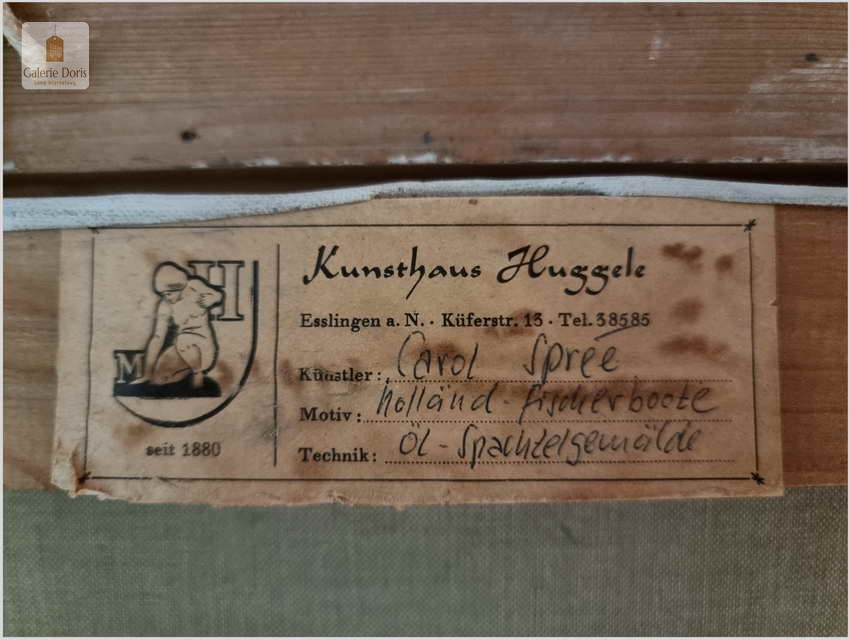 Galerie Doris
Kunsthaus Huggele
Esslingen a. N. · Küferstr. 13 · Tel. 38585
Künstler: Carol Spree
Motiv: Holländ. Fischerboote
Technik: Öl-Spachtelgemälde
M H
seit 1880